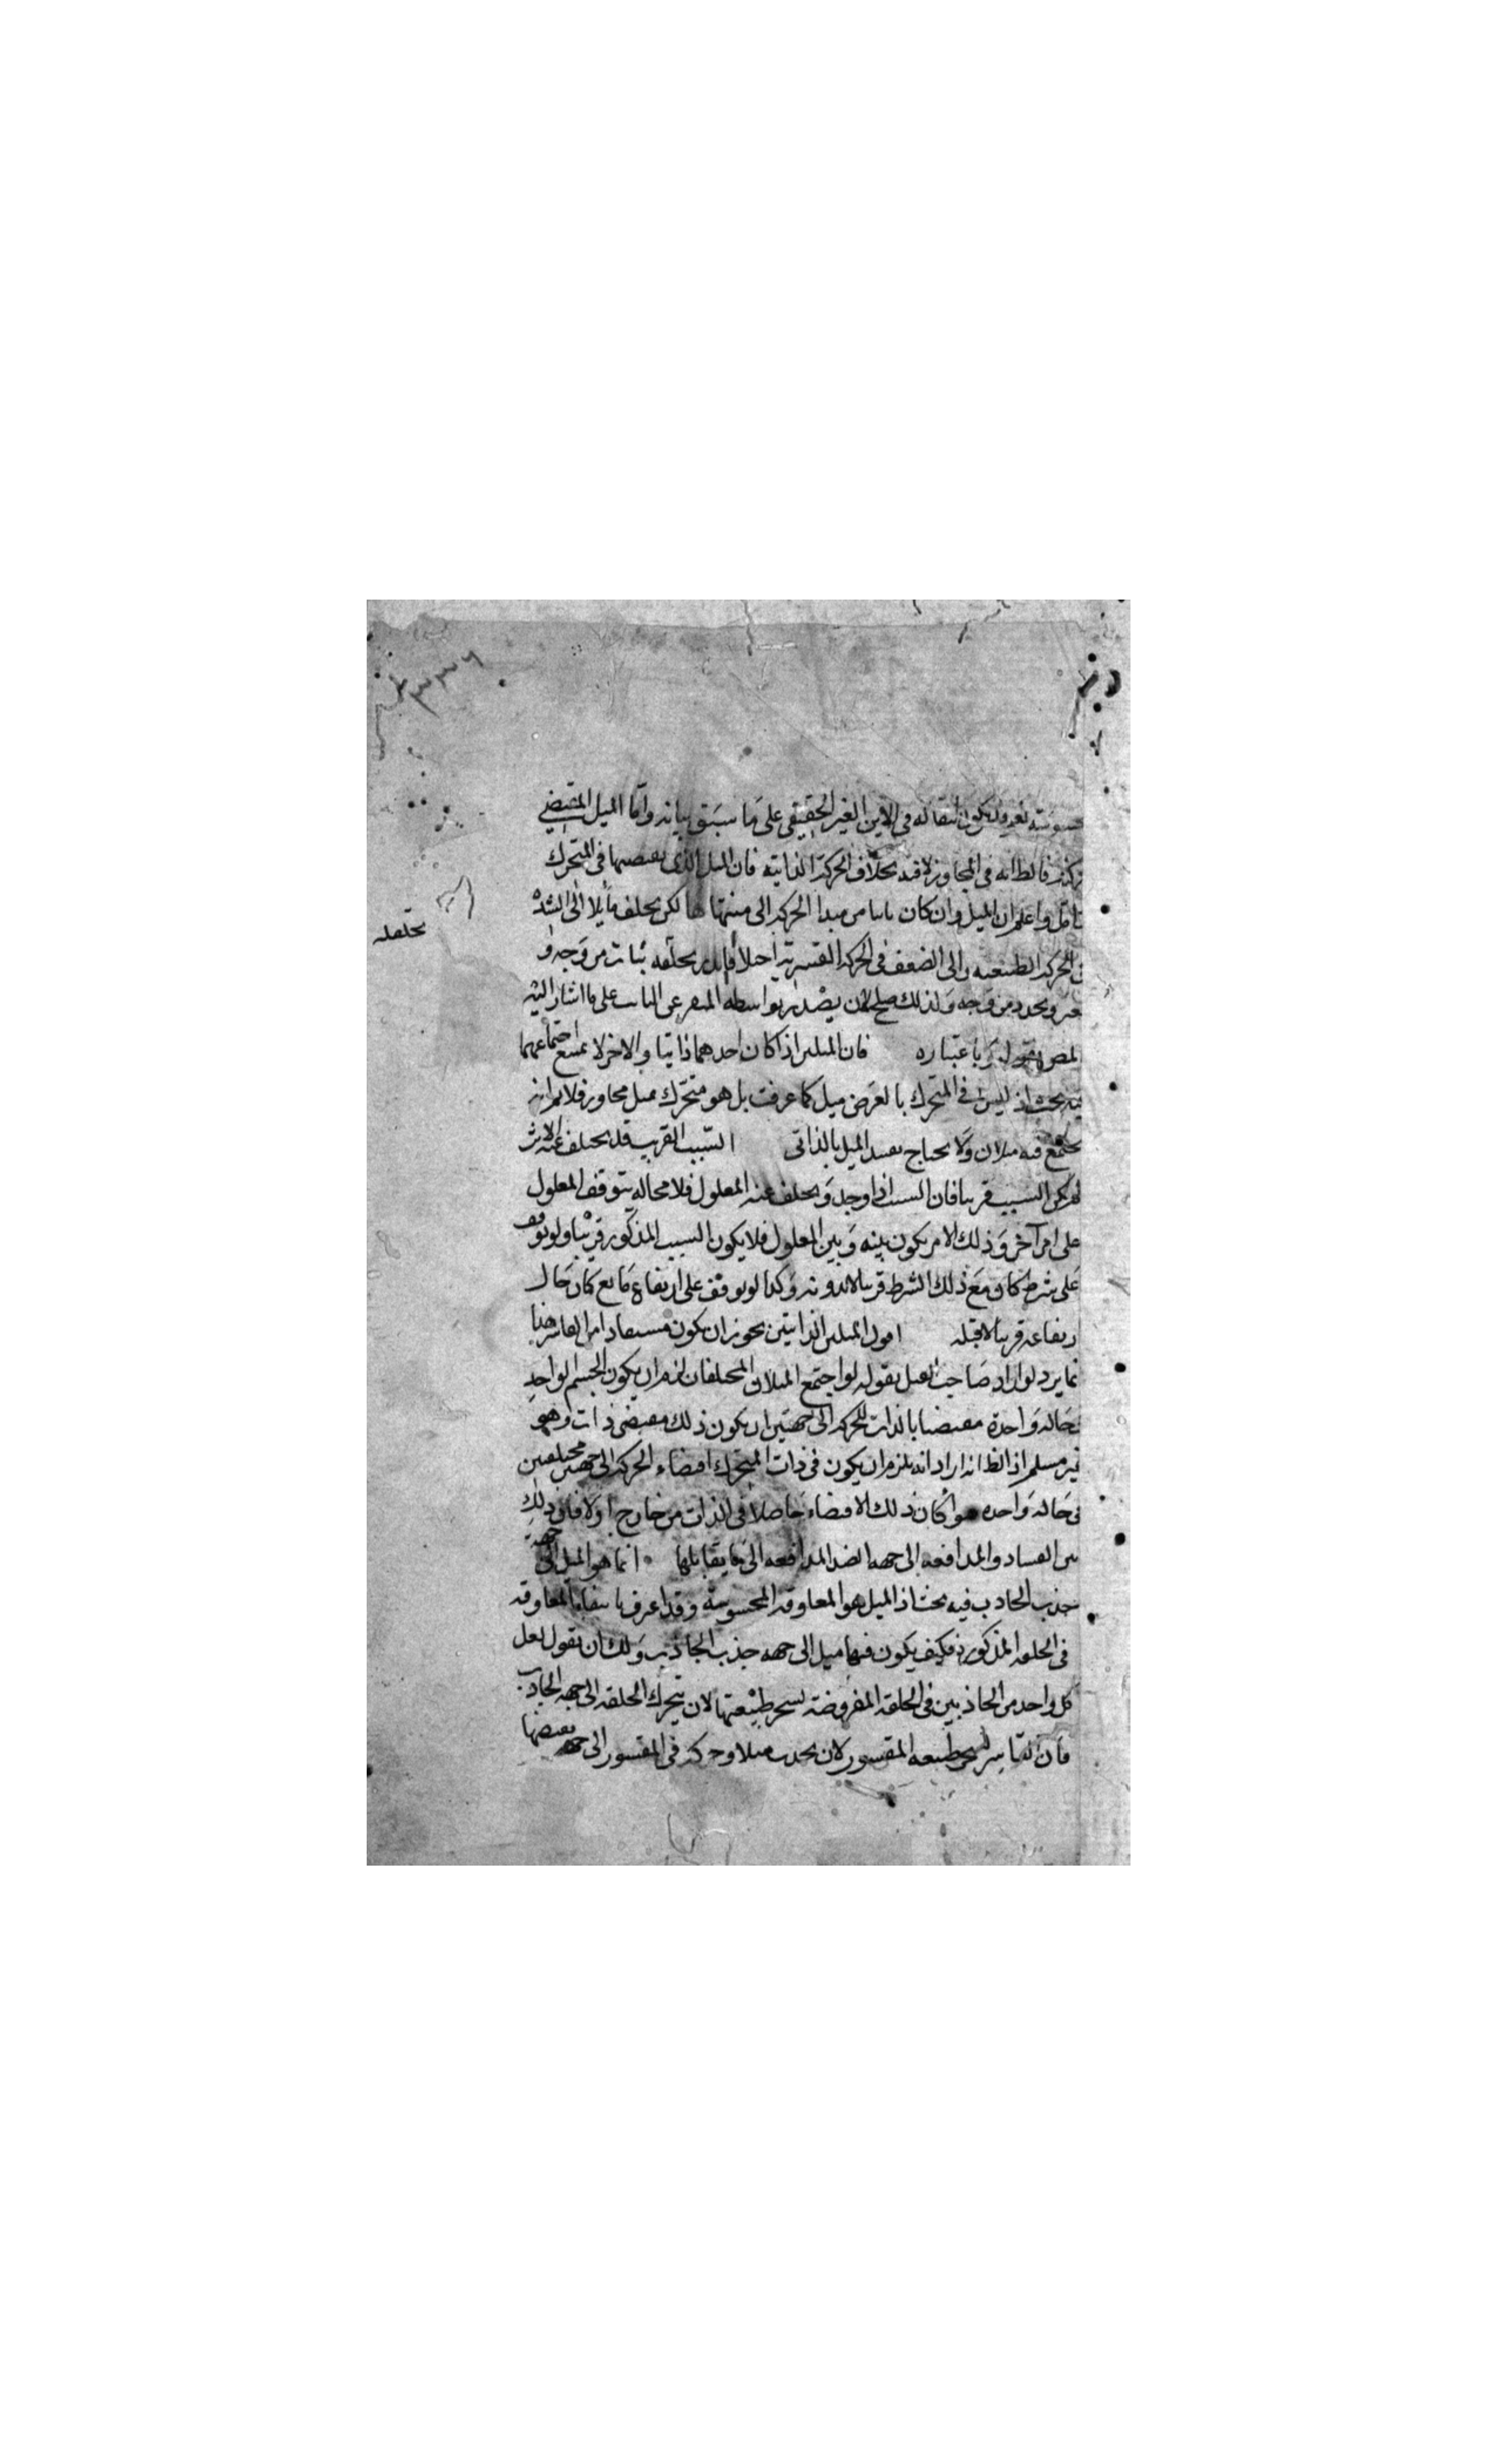 في الاين الغير الحقيقي على ما سبق بيانه واما الميل المقتضي
في المجاور لا فيه بخلاف الحركة الذاتية فان الميل الذي يقتضيها في المتحرك
واعلم ان الميل وان كان ثابتا من مبدا الحركة الى منتهاها لكن يختلف مائلا الى الشدة
الحركة الطبيعية والى الضعف في الحركة القسرية ثبات من وجه و
وتجدد من وجه ولذلك صلح لان يصدر بواسطة المتغير عن الثابت على ما اشار اليه
المص بقوله باعتباره فان الميلين اذا كان احدهما ذاتيا والاخر لا يمتنع اجتماعهما
فيه بحث اذ ليس في المتحرك بالعرض ميل كما عرفت بل هو متحرك بميل مجاوره فلا
يجتمع فيه ميلان ولا يحتاج الميل بالذاتي السبب القريب قد يختلف عنه الاثر
لم يكن السبب قريبا فان السبب اذا وجد وتخلف عنه المعلول فلا محالة يتوقف المعلول
على امر آخر وذلك الامر يكون بينه وبين المعلول فلا يكون السبب المذكور قريبا ولو توقف
على شرط كان مع ذلك الشرط قريبا لا بدونه وكذا لو توقف على ارتفاع مانع كان حال
ارتفاعه قريبا لا قبله اقول الميلين الذاتيين يجوز ان يكون
انما يرد لو اراد صاحب القيل بقوله لو اجتمع الميلان المختلفان لزم ان يكون الجسم الواحد
بحالة واحدة مقتضيا بالذات للحركة الى جهتين ان يكون ذلك مقتضى ذات وهو
غير مسلم اذ الظ انه اراد انه يلزم ان يكون في ذات المتحرك اقتضاء الحركة الى جهتين مختلفتين
في حالة واحدة سواء كان ذلك الاقتضاء حاصلا في الذات من خارج اولا فان ذلك
بين الفساد والمدافعة الى جهة الضد المدافعة الى ما يقابلها انما هو الميل الى جهة
جذب الجاذب فيه بحث اذ الميل هو المعاوقة المحسوسة وقد اعرف بانتفاء المعاوقة
في الحلقة المذكورة فكيف يكون فيها ميل الى جهة جذب الجاذب ولك ان تقول لعل
كل واحد من الجاذبين في الحلقة المفروضة يسخر طبيعتها لان تتحرك الحلقة الى جهة الجاذب
فان القاسر يسخر طبيعة المقسور لان يحدث ميلا وحركة في المقسور الى جهة يقتضيها